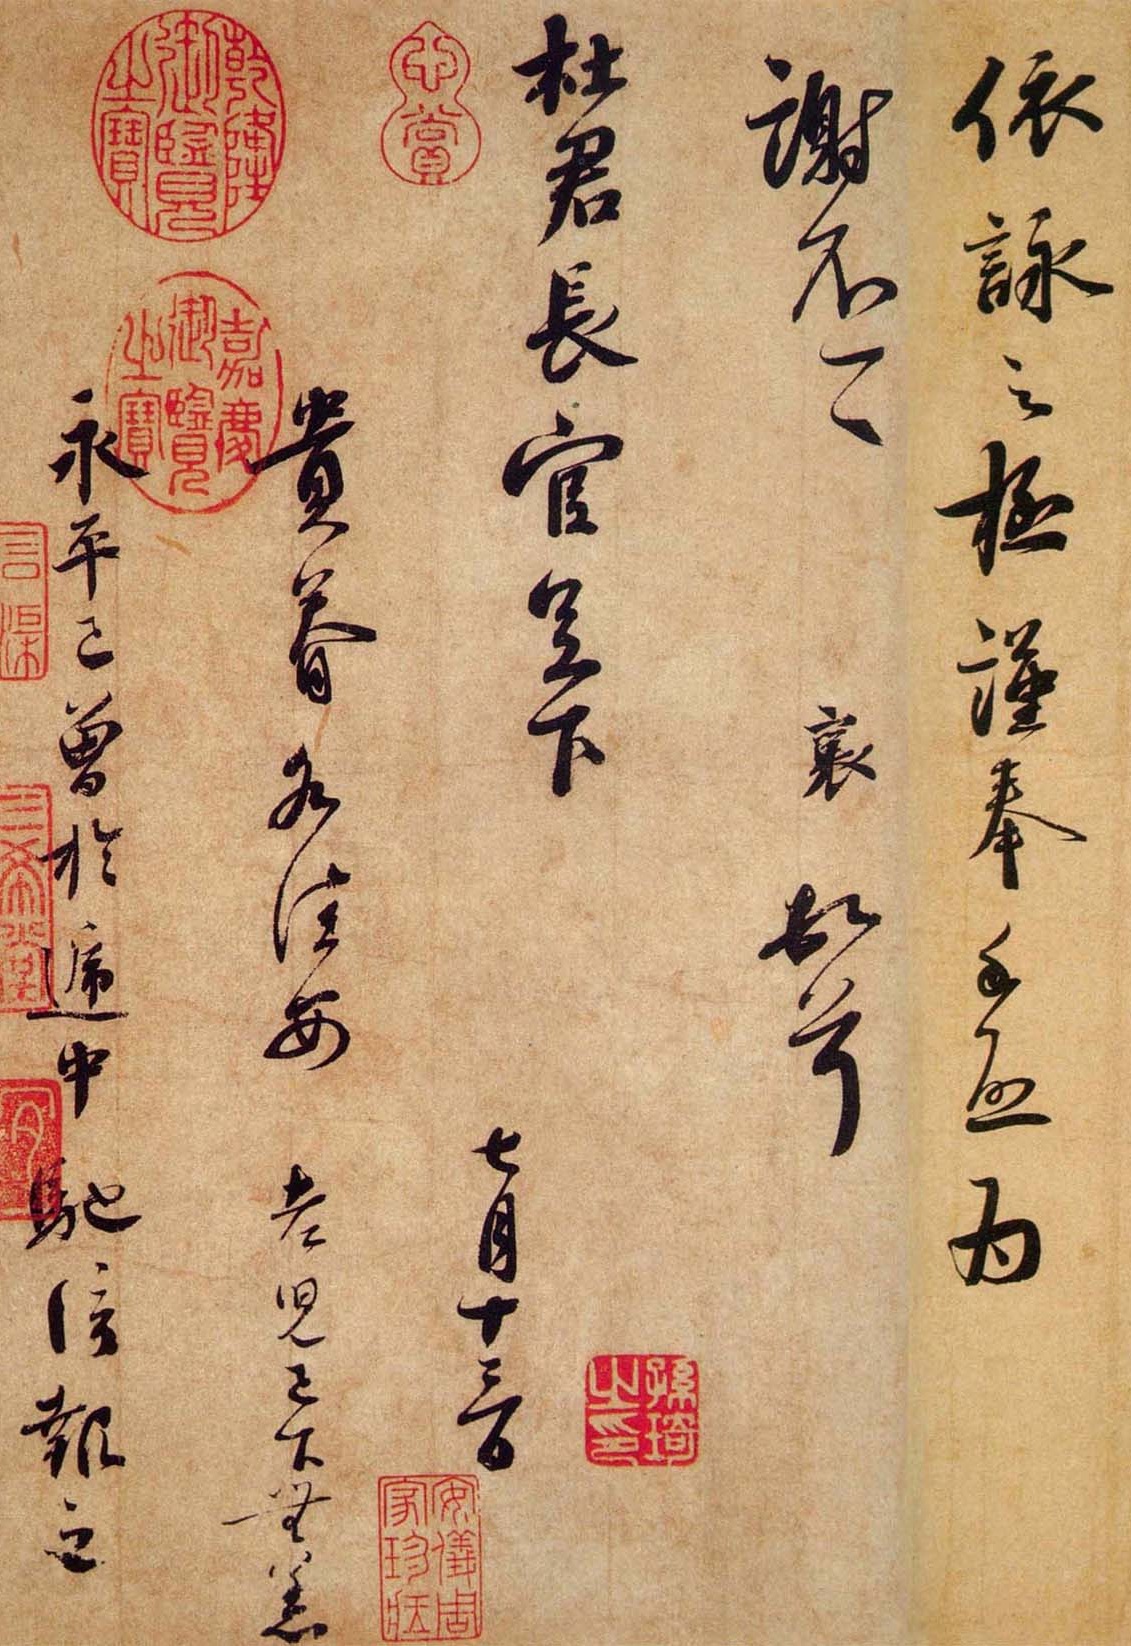 依詠之極謹奉手啟為
謝不一一 襄 頓首
杜君長官足下
七月十三日
貴眷各佳安 老兒已下無恙
永平已曾於遞中馳信報之
乾隆御覽之寶
嘉慶御覽之寶
心賞
安儀周家珍藏